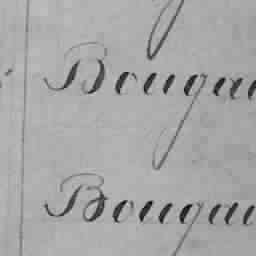 Bougai
Bougai